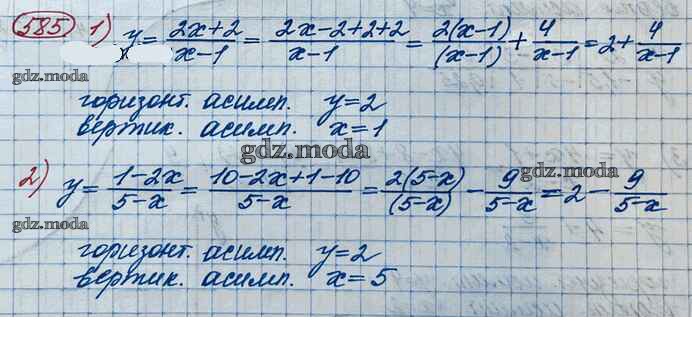 585 1) y = (2x+2)/(x-1) = (2x-2+2+2)/(x-1) = 2(x-1)/(x-1) + 4/(x-1) = 2 + 4/(x-1)
gdz.moda
gdz.moda
горизонт. асимп. y=2
вертик. асимп. x=1
gdz.moda
2) y = (1-2x)/(5-x) = (10-2x+1-10)/(5-x) = 2(5-x)/(5-x) - 9/(5-x) = 2 - 9/(5-x)
gdz.moda
gdz.moda
горизонт. асимп. y=2
вертик. асимп. x=5